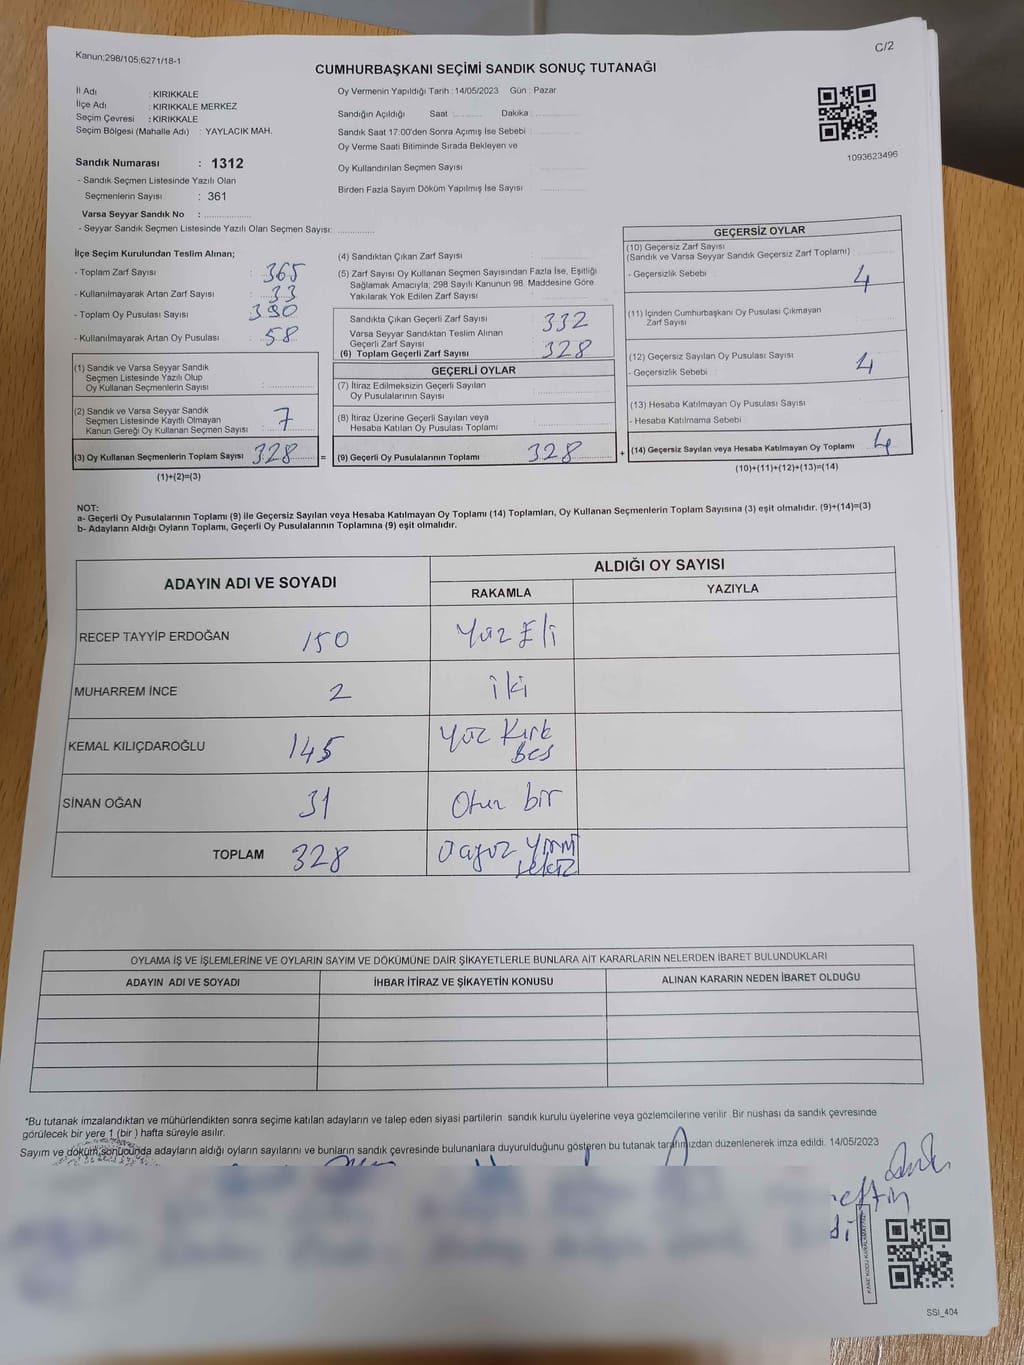 Kanun;298/105;6271/18-1
C/2
CUMHURBAŞKANI SEÇİMİ SANDIK SONUÇ TUTANAĞI
İl Adı : KIRIKKALE
İlçe Adı : KIRIKKALE MERKEZ
Seçim Çevresi : KIRIKKALE
Seçim Bölgesi (Mahalle Adı) : YAYLACIK MAH.
Sandık Numarası : 1312
- Sandık Seçmen Listesinde Yazılı Olan
Seçmenlerin Sayısı : 361
Varsa Seyyar Sandık No : ..............
- Seyyar Sandık Seçmen Listesinde Yazılı Olan Seçmen Sayısı: ............
Oy Vermenin Yapıldığı Tarih : 14/05/2023 Gün : Pazar
Sandığın Açıldığı Saat : .......... Dakika : ..............
Sandık Saat 17:00'den Sonra Açılmış İse Sebebi : ..............
Oy Verme Saati Bitiminde Sırada Bekleyen ve
Oy Kullandırılan Seçmen Sayısı : ..............
Birden Fazla Sayım Döküm Yapılmış İse Sayısı : ..............
1093623496
İlçe Seçim Kurulundan Teslim Alınan;
- Toplam Zarf Sayısı : 365
- Kullanılmayarak Artan Zarf Sayısı : 33
- Toplam Oy Pusulası Sayısı : 390
- Kullanılmayarak Artan Oy Pusulası : 58
(1) Sandık ve Varsa Seyyar Sandık
Seçmen Listesinde Yazılı Olup
Oy Kullanan Seçmenlerin Sayısı : ..............
(2) Sandık ve Varsa Seyyar Sandık
Seçmen Listesinde Kayıtlı Olmayan
Kanun Gereği Oy Kullanan Seçmen Sayısı : 7
(3) Oy Kullanan Seçmenlerin Toplam Sayısı 328 =
(1)+(2)=(3)
(4) Sandıktan Çıkan Zarf Sayısı : ..............
(5) Zarf Sayısı Oy Kullanan Seçmen Sayısından Fazla İse, Eşitliği
Sağlamak Amacıyla; 298 Sayılı Kanunun 98. Maddesine Göre
Yakılarak Yok Edilen Zarf Sayısı : ..............
Sandıkta Çıkan Geçerli Zarf Sayısı : 332
Varsa Seyyar Sandıktan Teslim Alınan
Geçerli Zarf Sayısı
(6) Toplam Geçerli Zarf Sayısı : 328
GEÇERLİ OYLAR
(7) İtiraz Edilmeksizin Geçerli Sayılan
Oy Pusulalarının Sayısı : ..............
(8) İtiraz Üzerine Geçerli Sayılan veya
Hesaba Katılan Oy Pusulası Toplamı : ..............
(9) Geçerli Oy Pusulalarının Toplamı : 328 +
GEÇERSİZ OYLAR
(10) Geçersiz Zarf Sayısı
(Sandık ve Varsa Seyyar Sandık Geçersiz Zarf Toplamı) :
- Geçersizlik Sebebi : 4
(11) İçinden Cumhurbaşkanı Oy Pusulası Çıkmayan
Zarf Sayısı : ..............
(12) Geçersiz Sayılan Oy Pusulası Sayısı : 4
- Geçersizlik Sebebi :
(13) Hesaba Katılmayan Oy Pusulası Sayısı :
- Hesaba Katılmama Sebebi :
(14) Geçersiz Sayılan veya Hesaba Katılmayan Oy Toplamı : 4
(10)+(11)+(12)+(13)=(14)
NOT:
a- Geçerli Oy Pusulalarının Toplamı (9) ile Geçersiz Sayılan veya Hesaba Katılmayan Oy Toplamı (14) Toplamları, Oy Kullanan Seçmenlerin Toplam Sayısına (3) eşit olmalıdır. (9)+(14)=(3)
b- Adayların Aldığı Oyların Toplamı, Geçerli Oy Pusulalarının Toplamına (9) eşit olmalıdır.
ADAYIN ADI VE SOYADI
ALDIĞI OY SAYISI
RAKAMLA YAZIYLA
RECEP TAYYİP ERDOĞAN 150 Yüz Eli
MUHARREM İNCE 2 iki
KEMAL KILIÇDAROĞLU 145 Yüz Kırk
Beş
SİNAN OĞAN 31 Otuz bir
TOPLAM 328 Üçyüz Yirmi
sekiz
OYLAMA İŞ VE İŞLEMLERİNE VE OYLARIN SAYIM VE DÖKÜMÜNE DAİR ŞİKAYETLERLE BUNLARA AİT KARARLARIN NELERDEN İBARET BULUNDUKLARI
ADAYIN ADI VE SOYADI İHBAR İTİRAZ VE ŞİKAYETİN KONUSU ALINAN KARARIN NEDEN İBARET OLDUĞU
*Bu tutanak imzalandıktan ve mühürlendikten sonra seçime katılan adayların ve talep eden siyasi partilerin sandık kurulu üyelerine veya gözlemcilerine verilir. Bir nüshası da sandık çevresinde
görülecek bir yere 1 (bir ) hafta süreyle asılır.
Sayım ve döküm sonucunda adayların aldığı oyların sayılarını ve bunların sandık çevresinde bulunanlara duyurulduğunu gösteren bu tutanak tarafımızdan düzenlenerek imza edildi. 14/05/2023
SSİ_404